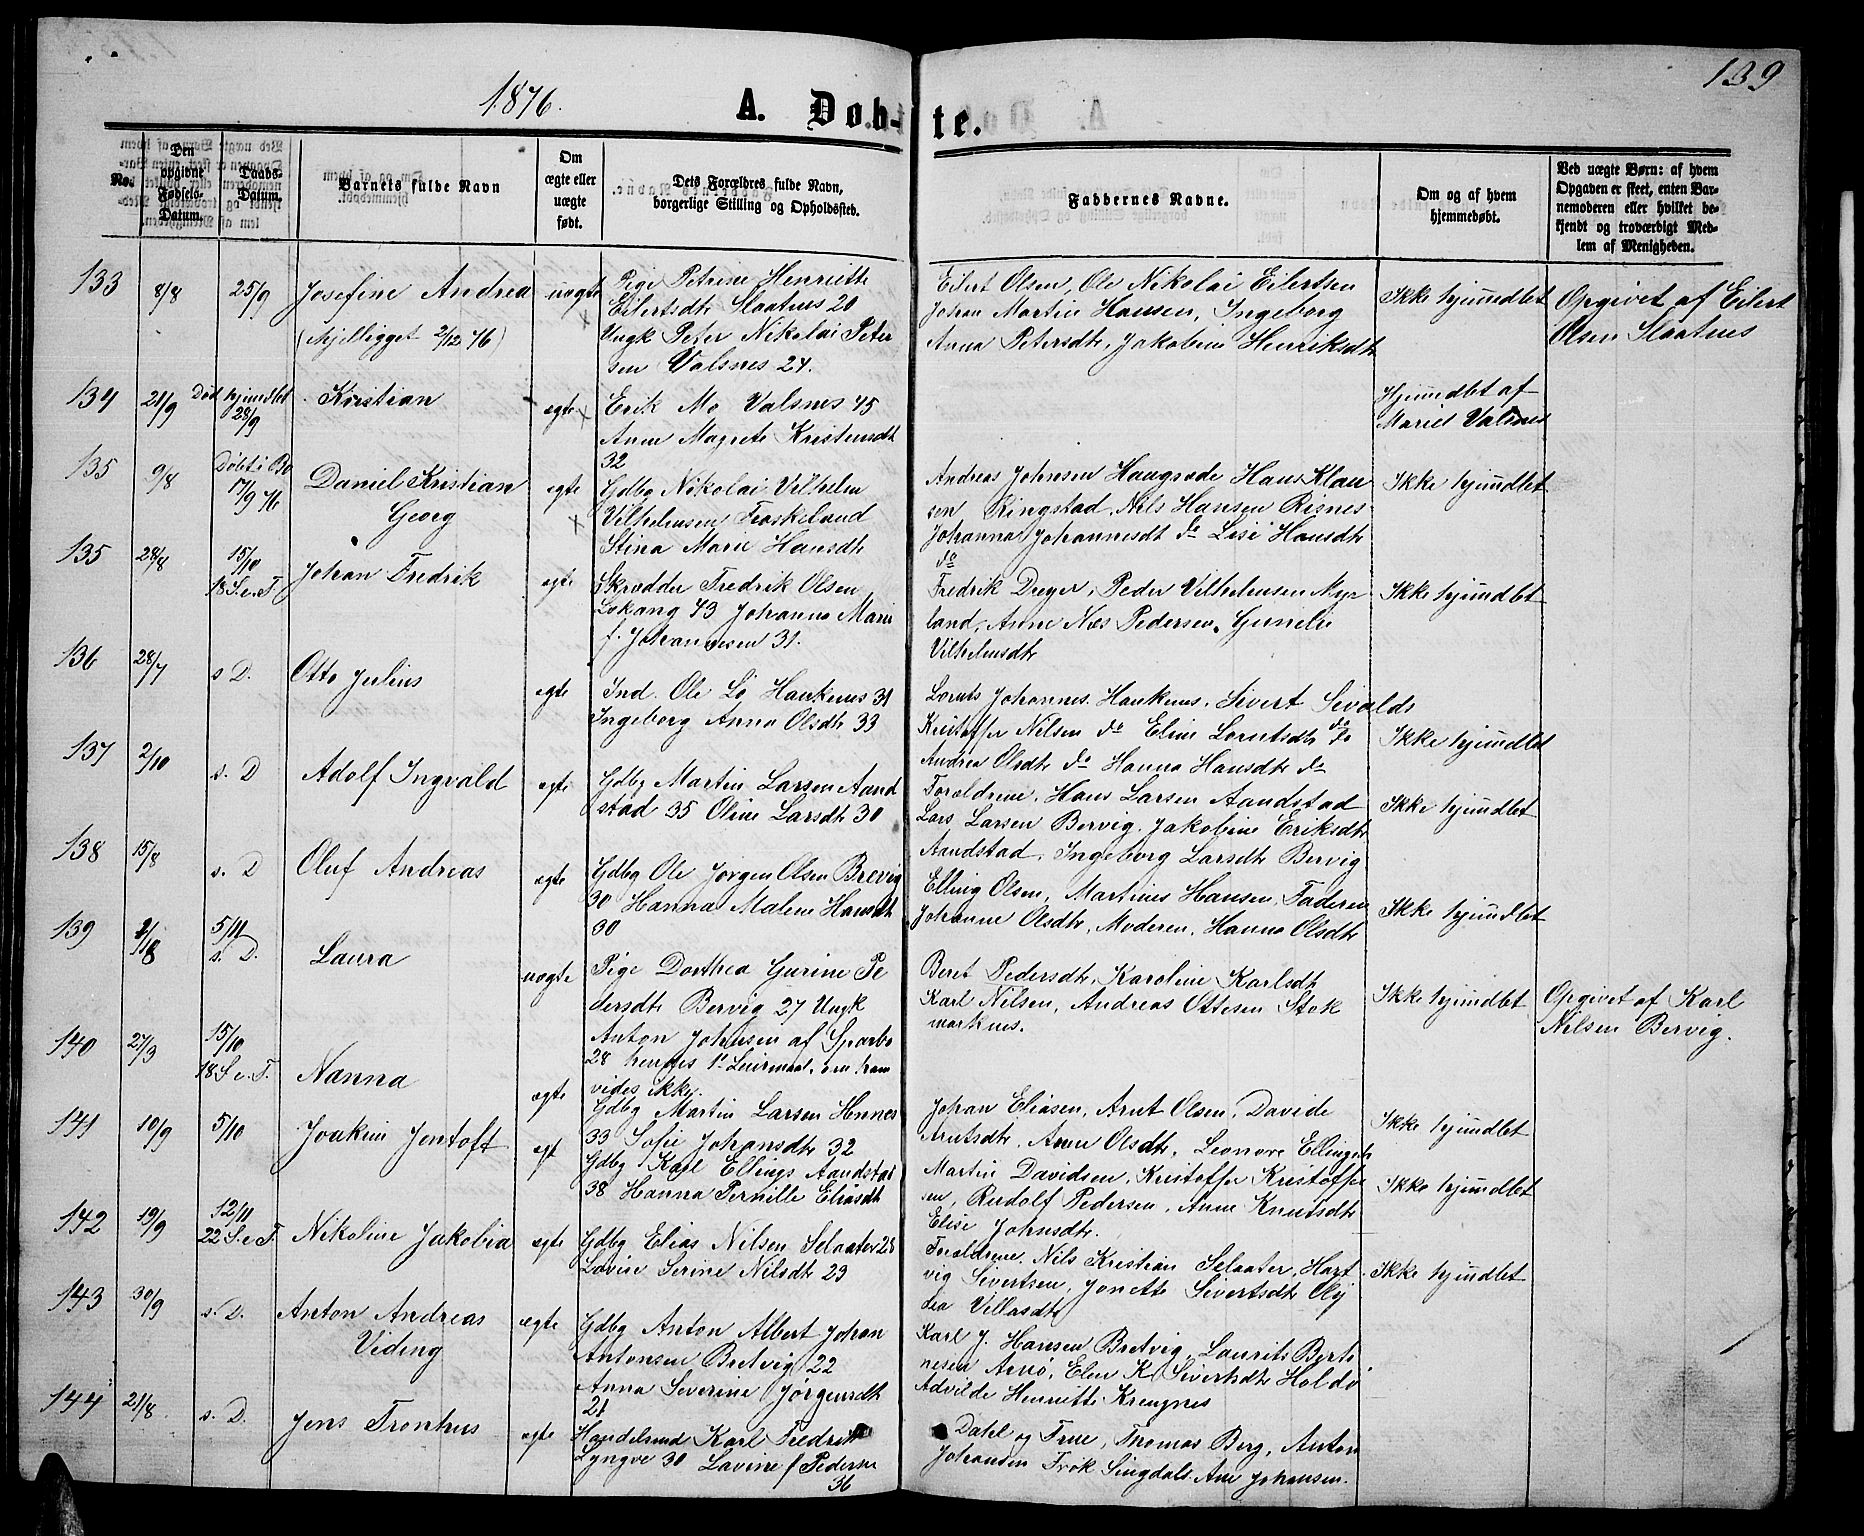 1876.
A. Døb-te.
139
No.
Den opgivne Fødsels-Datum.
Daabs-Datum.
Barnets fulde Navn
Om ægte eller uægte født.
Dets Forældres fulde Navn, borgerlige Stilling og Opholdssted.
Faddernes Navne.
Om og af hvem hjemmedøbt.
Ved uægte Børn: af hvem Opgaven er skeet, enten Barnemoderen eller hvilket bekjendt og troværdigt Medlem af Menigheden.
133 8/8 25/9 Josefine Andrea uægte
Pige Petrine Henriette
Eilertsdtr Slaatnes 20
Ungk Peter Nikolai Peter
sen Valsnes 24.
Eilert Olsen, Ole Nikolai Eilertsen
Johan Martin Hansen, Ingeborg
Anna Petersdtr, Jakobine Henriksdtr
Ikke hjemdbt
Opgivet af Eilert
Olsen Slaatnes
134 21/9 Død hjemdbt
28/9
Kristian
egte
Erik Mo Valsnes 45
Anne Magrete Kristensdt
32
Hjemdbt af
Mariel Valsnes
135 9/8 Døbt i Bo
17/9 76
Daniel Kristian
Georg
egte
Gdbg Nikolai Vilhelm
Vilhelmsen Fraskeland
Stina Marie Hansdtr
Andreas Johnsen Haugsnede Hans Klau
sen Ringstad, Nils Hansen Risnes
Johanna Johannesdt do Lise Hansdtr
do
Ikke hjemdbt
135 28/8 15/10
18 S. e. T.
Johan Fredrik
egte
Skrædder Fredrik Olsen
Lokang 43 Johanna Marie
f. Johannesen 31.
Fredrik Dreyer, Peder Vilhelmsen Myr
land, Anne Næs Pedersen, Gunelie
Vilhelmsdtr
Ikke hjemdbt
136 28/7 s D. Otto Julius
egte
Ind. Ole Lo Haukenes 31
Ingeborg Anna Olsdtr 33
Lornts Johannes. Haukenes, Sivert Sivalds
Kristoffer Nilsen do Eline Lorntsdtr do
Andrea Olsdtr do Hanna Hansdtr do
Ikke hjemdbt
137 2/10 s. D Adolf Ingvald
egte
Gdbg Martin Larsen Aand
stad 35 Oline Larsdtr 30
Foreldrene, Hans Larsen Aandstad
Lars Larsen Bervig. Jakobine Eriksdtr
Aandstad, Ingeborg Larsdtr Bervig
Ikke hjemdbt
138 15/8 s. D Oluf Andreas
egte
Gdbg Ole Jørgen Olsen Brevig
30 Hanna Malene Hansdt
30
Elling Olsen, Martines Hansen, Faderen
Johanne Olsdtr, Moderen, Hanna Olsdtr
Ikke hjemdbt
139 5/11
s. D.
Laura
uægte
Pige Dorthea Gurine Pe
dersdtr Bervig 27 Ungk
Anton Johnsen af Sparbo
28 hennes 1ste Leiermaal, om ham
vides ikke.
Beret Pedersdtr, Karoline Karlsdt
Karl Nilsen, Andreas Ottesen Stok
marknes.
Ikke hjemdbt
Opgivet af Karl
Nilsen Bervig.
140 27/3 15/10
18 S. e. T.
Nanna
egte
Gdbg Martin Larsen Hennes
33 Sofie Johansdtr 32
Johan Eliasen, Arnt Olsen, Davide
Arntsdtr, Anne Olsdtr, Leonore Ellingsdtr
Ikke hjemdbt
141 10/9 5/10 Joakim Jentoft
egt
Gdbg Karl Ellings Aandstad
38 Hanna Pernille Eliasdt
Martin Davidsen, Kristoffer Kristoffer
sen, Rudolf Pedersen, Anne Knutsdtr
Elise Johnsdtr.
Ikke hjemdbt
142 19/9 12/11
22 S. e. T.
Nikoline Jakobia
egte
Gdbg Elias Nilsen Selaater 28
Lovise Serine Nilsdtr 29
Foreldrene, Nils Kristian Selaater, Hart
vig Sivertsen, Jonette Sivertsdtr Oly
dia Villasdtr
Ikke hjemdbt
143 30/9 s. D. Anton Andreas
Viding
egte
Gdbg Anton Albert Johan
Antonsen Bretvig 22
Anna Severine Jørgensdt
21
Karl J. Hansen Bretvig, Laurits Bert
nesen Arnø, Elen K Sivertsdtr Holdø
Advilde Henriette Krengnes
144 21/8 s. D. Jens Tronhus
egte
Handelsmd Karl Fredrik
Lyngve 30 Lavine f Pedersen
36
Dahl og Frue, Thomas Berg, Anton
Johansen Frøk Singdals. Ane Johansen.